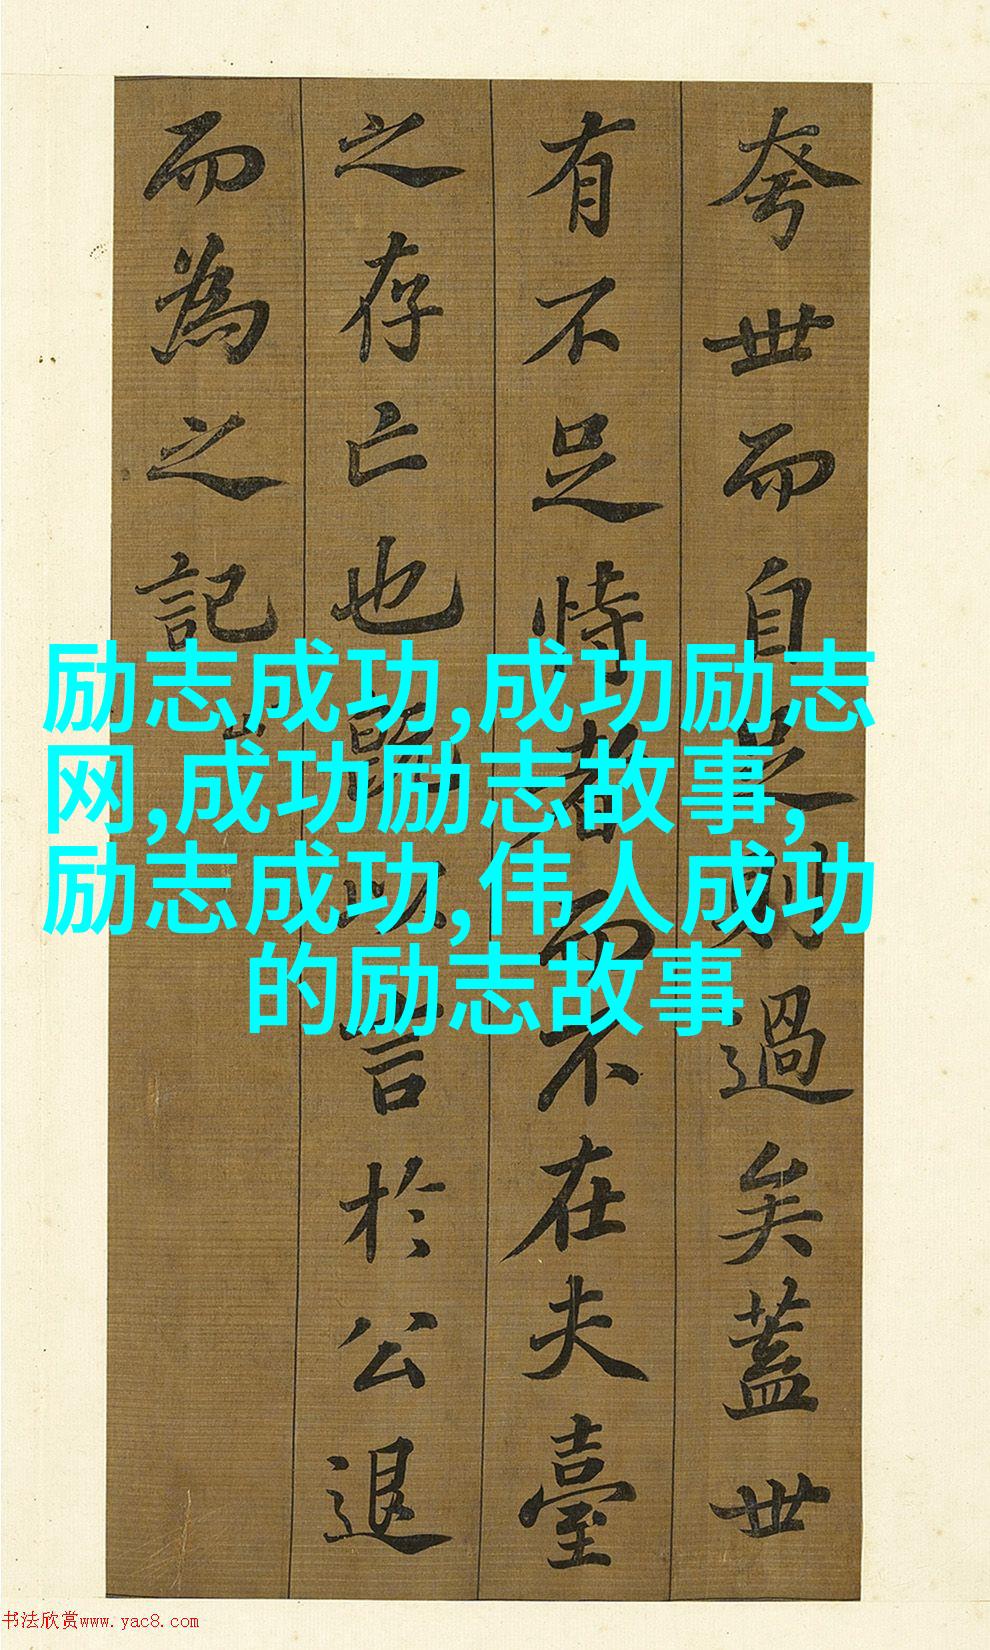 夸世而自足則過矣蓋世
有不足恃者而不在夫臺
之存亡也既以言於公退
而為之記
励志成功,成功励志
网,成功励志故事,
励志成功,伟人成功
的励志故事
书法欣赏www.yac8.com